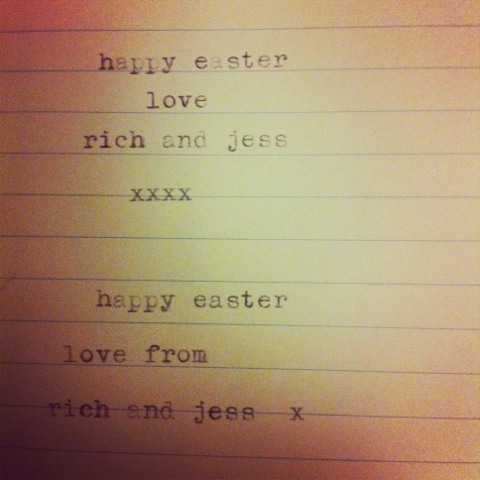 happy easter
love
rich and jess
xxxx
happy easter
love from
rich and jess x